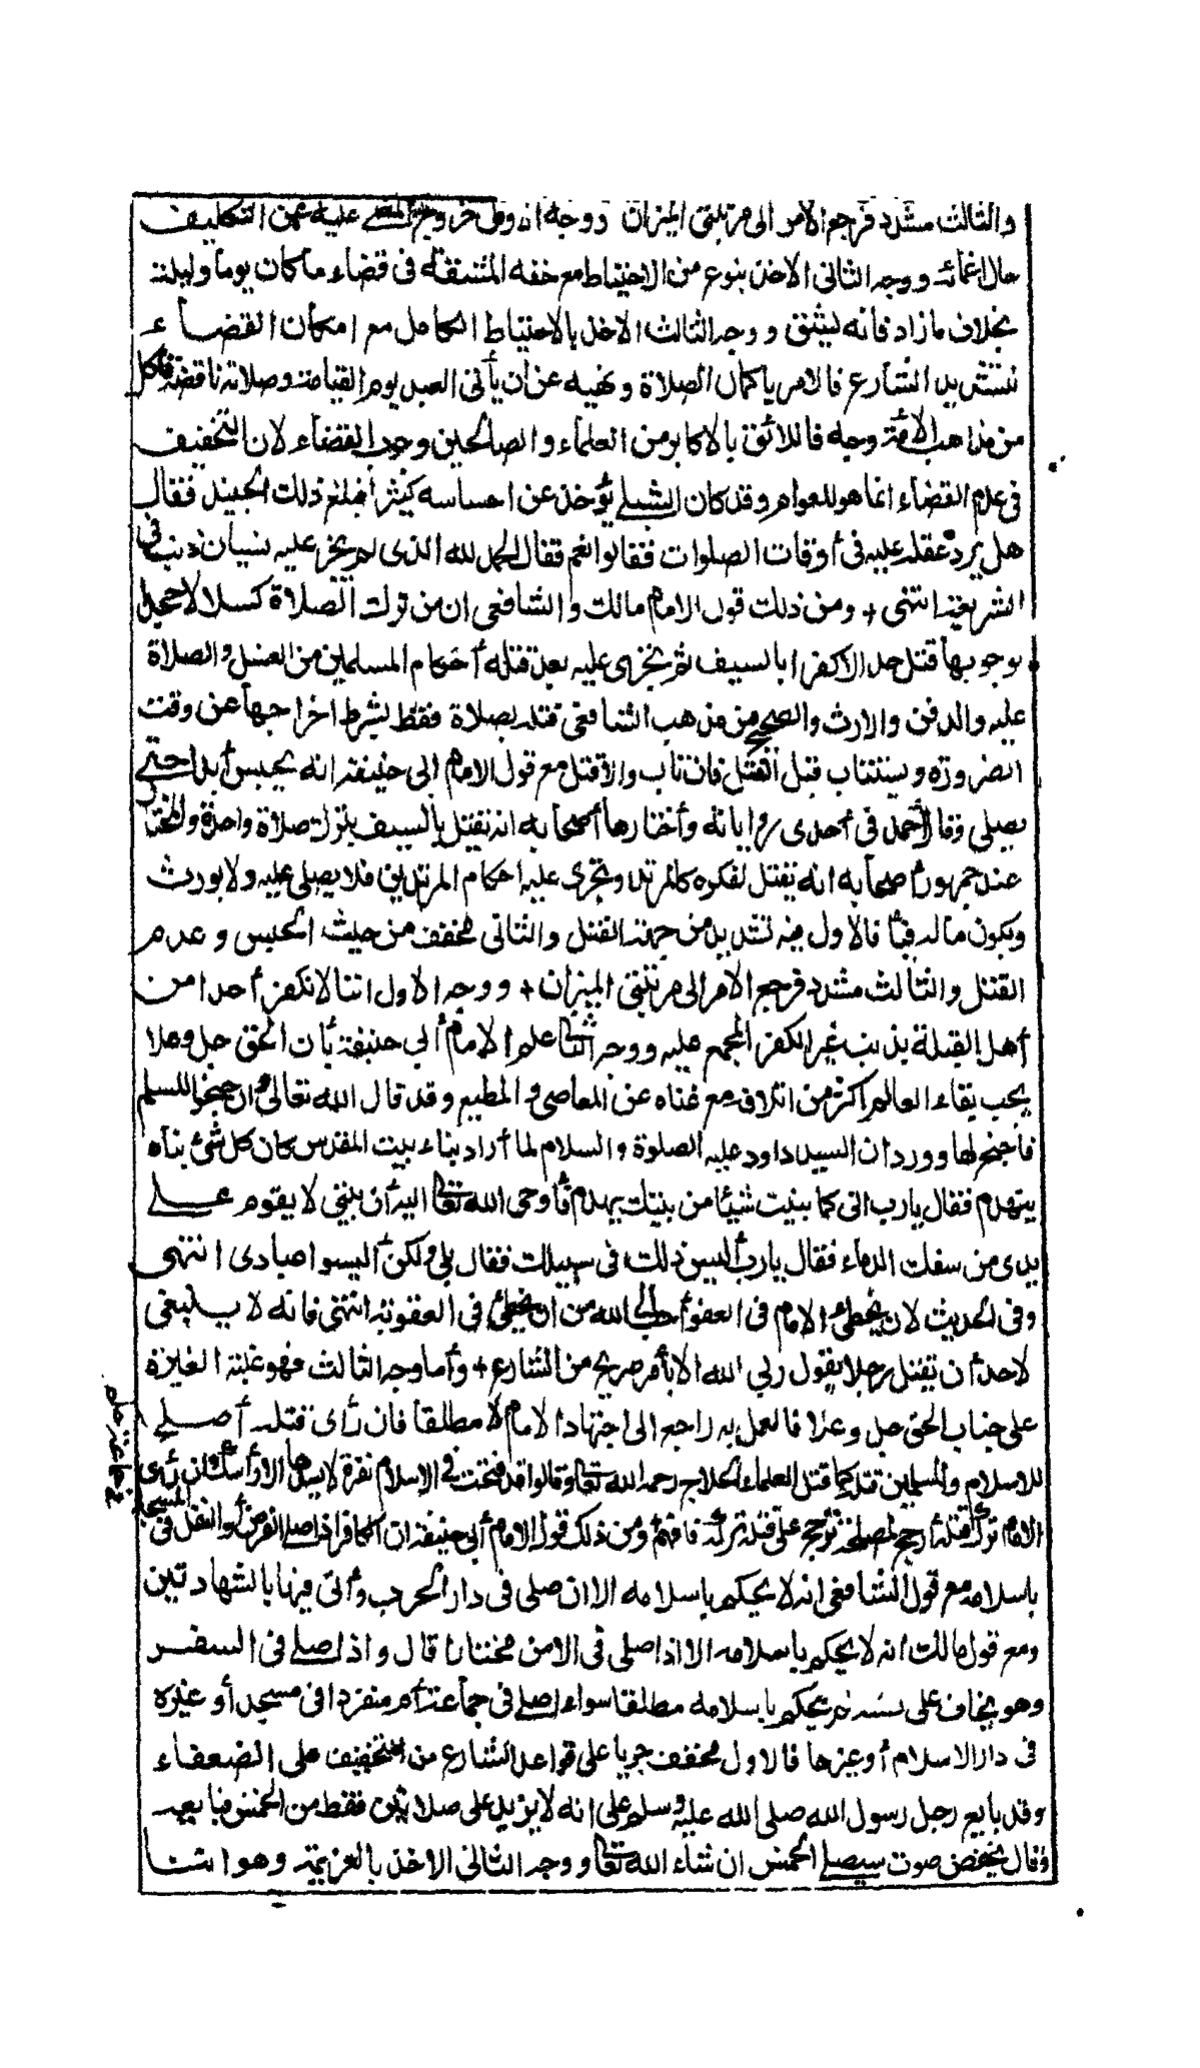 والثالث مشدد فرجع الامر الى مرتبتى الميزان ووجه الاول خروج المغمى عليه عن التكليف
حال اغمائه ووجه الثانى الاخذ بنوع من الاحتياط مع خفة المشقة فى قضاء ما كان يوما وليلة
بخلاف ما زاد فانه يشق ووجه الثالث الاخذ بالاحتياط الكامل مع امكان القضاء
لتشديد الشارع فالامر باكمال الصلاة ونهيه عن ان يأتى العبد يوم القيامة وصلاته ناقصة فلكل
من مذاهب الأئمة وجه فاللائق بالاكابر من العلماء والصالحين وجوب القضاء لان التخفيف
فى عدم القضاء انما هو للعوام وقد كان الشبلى يؤخذ عن احساسه كثيرا فبلغ ذلك الجنيد فقال
هل يرد عقله عليه فى أوقات الصلوات فقالوا نعم فقال الحمد لله الذى لم يجر عليه لسان ذنب فى
الشريعة انتهى + ومن ذلك قول الامام مالك والشافعى ان من ترك الصلاة كسلا لا جحدا
بوجوبها قتل حدا لا كفرا بالسيف ثم يجرى عليه بعد قتله أحكام المسلمين من الغسل والصلاة
عليه والدفن والارث والصحيح من مذهب الشافعى قتله بصلاة فقط بشرط اخراجها عن وقت
الضرورة ويستتاب قبل القتل فان تاب والا قتل مع قول الامام ابى حنيفة انه يحبس أبدا حتى
يصلى وقال أحمد فى أحدى رواياته وأختارها أصحابه انه يقتل بالسيف بترك صلاة واحدة والمختار
عند جمهور أصحابه انه يقتل لكفره كالمرتد وتجرى عليه احكام المرتدين فلا يصلى عليه ولا يورث
ويكون ماله فيئا فالاول فيه تشديد من جهة القتل والثانى مخفف من حيث الحبس وعدم
القتل والثالث مشدد فرجع الامر الى مرتبتى الميزان + ووجه الاول اننا لا نكفر أحدا من
أهل القبلة بذنب غير الكفر المجمع عليه ووجه الثانى علم الامام أبى حنيفة بأن الحق جل وعلا
يحب بقاء العالم اكثر من اتلافه مع غناه عن العاصى والمطيع وقد قال الله تعالى وان جنحوا للسلم
فاجنح لها وورد ان السيد داود عليه الصلوة والسلام لما أراد بناء بيت المقدس كان كل شئ بناه
يتهدم فقال يارب انى كلما بنيت شيئا من بيتك يهدم فأوحى الله تعالى اليه أن بيتى لا يقوم على
يدى من سفك الدماء فقال يارب أليس ذلك فى سبيلك فقال بلى ولكن أليسوا عبادى انتهى
وفى الحديث لان يخطئ الامام فى العفو أحب الى الله من ان يخطئ فى العقوبة انتهى فانه لا ينبغى
لاحد أن يقتل رجلا يقول ربى الله الا بأمر صريح من الشارع + وأما وجه الثالث فهو غلبة الغيرة
على جناب الحق جل وعلا فالعمل به راجع الى اجتهاد الامام لا مطلقا فان رأى قتله أصلح
للاسلام والمسلمين قتله كما قتل العلماء الحلاج رحمه الله تعالى وقالوا قد فتحت فى الاسلام ثغرة لا يسدها الا رأسك وان رأى
الامام ترك قتله أرجح لمصلحة ترجح على قتله تركه فافهم ومن ذلك قول الامام أبى حنيفة ان الكافر اذا صلى الفرض أو النفل فى المسجد
باسلامه مع قول الشافعى انه لا يحكم باسلامه الا ان صلى فى دار الحرب وأتى فيها بالشهادتين
ومع قول مالك انه لا يحكم باسلامه الا اذا صلى فى الامن مختارا قال واذا صلى فى السفر
وهو يخاف على نفسه لم يحكم باسلامه مطلقا سواء اصلى فى جماعة أم منفردا فى مسجد أو غيره
فى دار الاسلام أو غيرها فالاول مخفف جريا على قواعد الشارع من التخفيف على الضعفاء
وقد بايع رجل رسول الله صلى الله عليه وسلم على انه لا يزيد على صلاتين فقط من الخمس فبايعه
وقال بخفض صوت سيصلى الخمس ان شاء الله تعالى ووجه الثانى الاخذ بالعزيمة وهو اننا